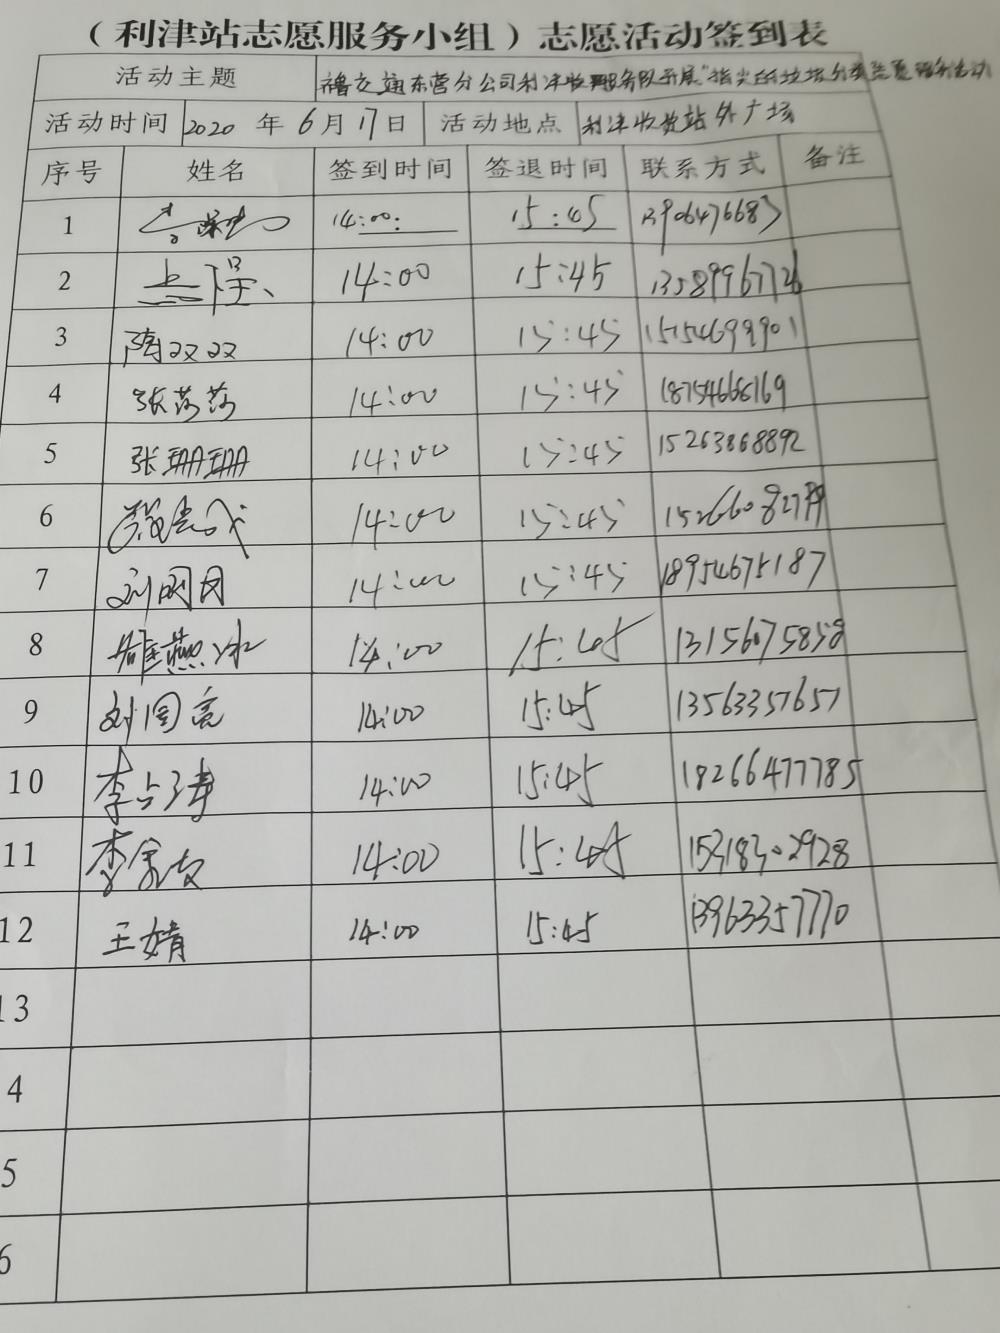 （利津站志愿服务小组）志愿活动签到表
活动主题 鲁交通东营分公司利津收费服务队开展"指尖的垃圾分类志愿服务活动
活动时间 2020 年 6 月 17 日 活动地点 利津收费站外广场
序号 姓名 签到时间 签退时间 联系方式 备注
1 14:00 15:45 13906476683
2 14:00 15:45
3 陶双双 14:00 15:45 15154699901
4 张莎莎 14:00 15:45 18754666169
5 张珊珊 14:00 15:45 15263868892
6 14:00 15:45
7 刘网网 14:00 15:45 18954675187
8 崔燕冰 14:00 15:45 13156075858
9 刘国亮 14:00 15:45 13563357657
10 李占涛 14:00 15:45 18266477785
11 李家友 14:00 15:45 15318302928
12 王婧 14:00 15:45 13963357770
13
4
5
6